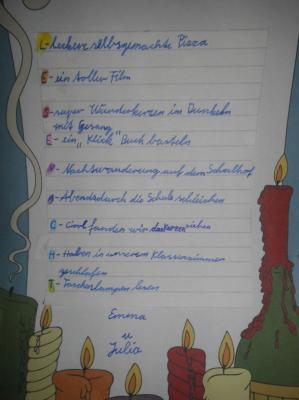 L - leckere selbsgemachte Pizza
E - ein toller Film
S - super Wunderkerzen im Dunkeln
mit Gesang
E - ein „Klick" Buch basteln
N - Nachtwanderung auf dem Schulhof
A - Abends durch die Schule schleichen
C - Cool fanden wir das
H - Haben in unserem Klassenzimmer
geschlafen
T - Taschenlampen lesen
Emma
u
Julia